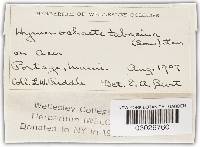 HERBARIUM OF WELLESLEY COLLEGE
Hymenochaete tabacina
(Sow.) Lev.
on Acer
Portage, Aug. 1907
Coll. L.W. Riddle Det. E.A. Burt
Wellesley College
Herbarium (WELC)
Donated to NY in 19
NEW YORK BOTANICAL GARDEN